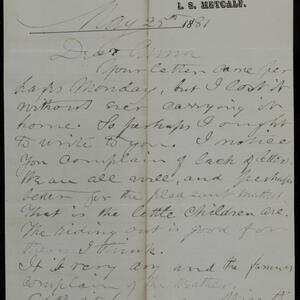 L. S. METCALF.
May 25th 1881
Dear Anna
Your letter came per
haps Monday, but I lost it
without ever carrying it
home. So perhaps I ought
to write to you. I notice
you complain of lack of letters.
We are all well, and perhaps
better for the pleasant weather.
That is the little children are.
The riding out is good for
them I think.
It is very dry and the farmers
complain of the weather.